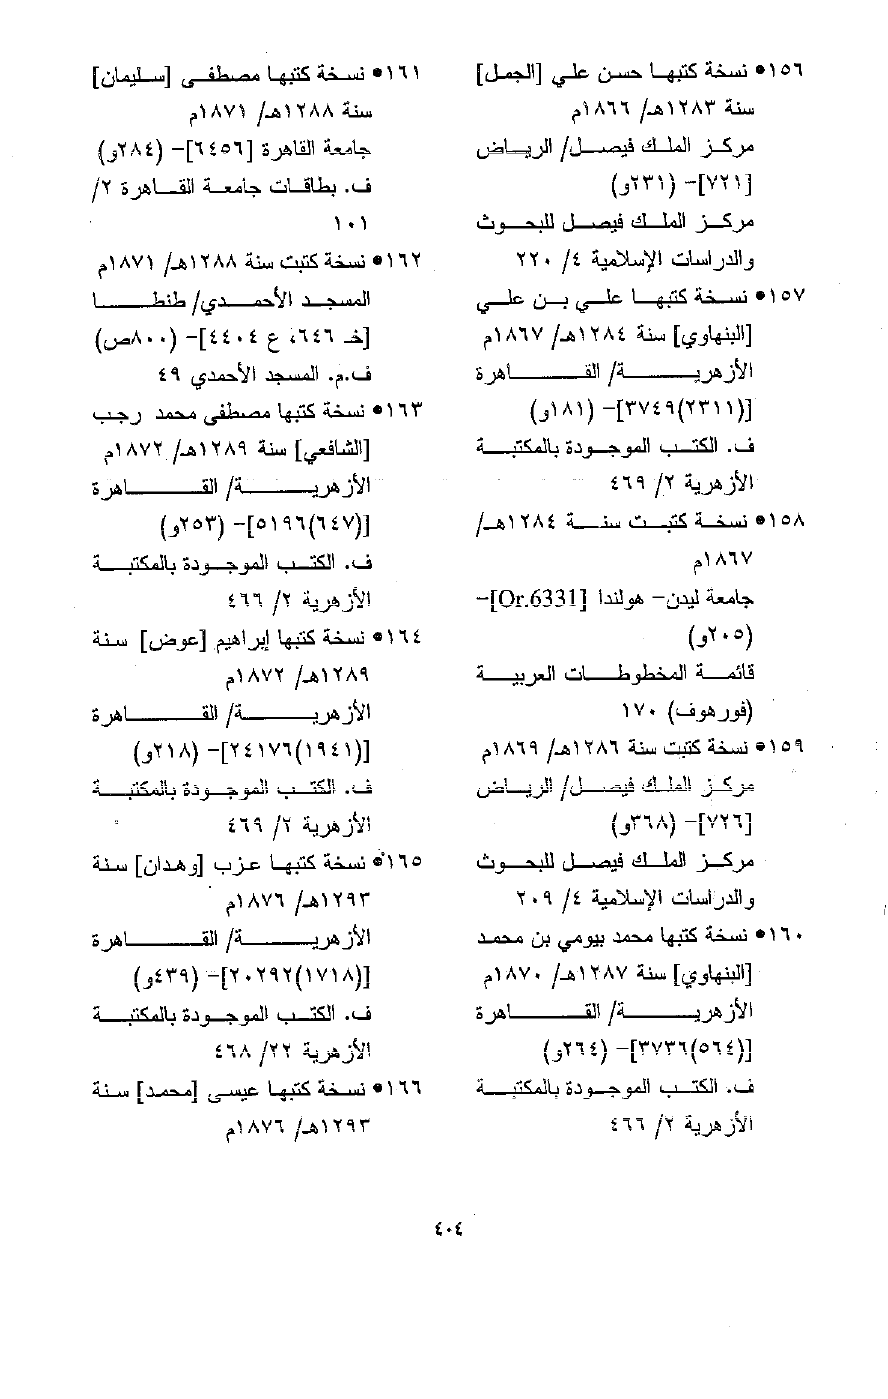 ١٥٦• نسخة كتبها حسن علي [الجمل]
سنة ١٢٨٣هـ/ ١٨٦٦م
مركز الملك فيصل/ الرياض
[٧٢١]- (٢٣١و)
مركز الملك فيصل للبحوث
والدراسات الإسلامية ٤/ ٢٢٠
١٥٧• نسخة كتبها علي بن علي
[البنهاوي] سنة ١٢٨٤هـ/ ١٨٦٧م
الأزهرية/ القاهرة
[(٢٣١١)٣٧٤٩]- (١٨١و)
ف. الكتب الموجودة بالمكتبة
الأزهرية ٢/ ٤٦٩
١٥٨• نسخة كتبت سنة ١٢٨٤هـ/
١٨٦٧م
جامعة ليدن- هولندا [Or.6331]-
(٢٠٥و)
قائمة المخطوطات العربية
(فورهوف) ١٧٠
١٥٩• نسخة كتبت سنة ١٢٨٦هـ/ ١٨٦٩م
مركز الملك فيصل/ الرياض
[٧٢٦]- (٣٦٨و)
مركز الملك فيصل للبحوث
والدراسات الإسلامية ٤/ ٢٠٩
١٦٠• نسخة كتبها محمد بيومي بن محمد
[البنهاوي] سنة ١٢٨٧هـ/ ١٨٧٠م
الأزهرية/ القاهرة
[(٥٦٤)٣٧٣٦]- (٢٦٤و)
ف. الكتب الموجودة بالمكتبة
الأزهرية ٢/ ٤٦٦
١٦١• نسخة كتبها مصطفى [سليمان]
سنة ١٢٨٨هـ/ ١٨٧١م
جامعة القاهرة [٦٤٥٦]- (٢٨٤و)
ف. بطاقات جامعة القاهرة ٢/
١٠١
١٦٢• نسخة كتبت سنة ١٢٨٨هـ/ ١٨٧١م
المسجد الأحمدي/ طنطا
[خـ ٦٤٦، ع ٤٤٠٤]- (٨٠٠ص)
ف.م. المسجد الأحمدي ٤٩
١٦٣• نسخة كتبها مصطفى محمد رجب
[الشافعي] سنة ١٢٨٩هـ/ ١٨٧٢م
الأزهرية/ القاهرة
[(٦٤٧)٥١٩٦]- (٢٥٣و)
ف. الكتب الموجودة بالمكتبة
الأزهرية ٢/ ٤٦٦
١٦٤• نسخة كتبها إبراهيم [عوض] سنة
١٢٨٩هـ/ ١٨٧٢م
الأزهرية/ القاهرة
[(١٩٤١)٢٤١٧٦]- (٢١٨و)
ف. الكتب الموجودة بالمكتبة
الأزهرية ٢/ ٤٦٩
١٦٥• نسخة كتبها عزب [وهدان] سنة
١٢٩٣هـ/ ١٨٧٦م
الأزهرية/ القاهرة
[(١٧١٨)٢٠٢٩٢]- (٤٣٩و)
ف. الكتب الموجودة بالمكتبة
الأزهرية ٢٢/ ٤٦٨
١٦٦• نسخة كتبها عيسى [محمد] سنة
١٢٩٣هـ/ ١٨٧٦م
٤٠٤